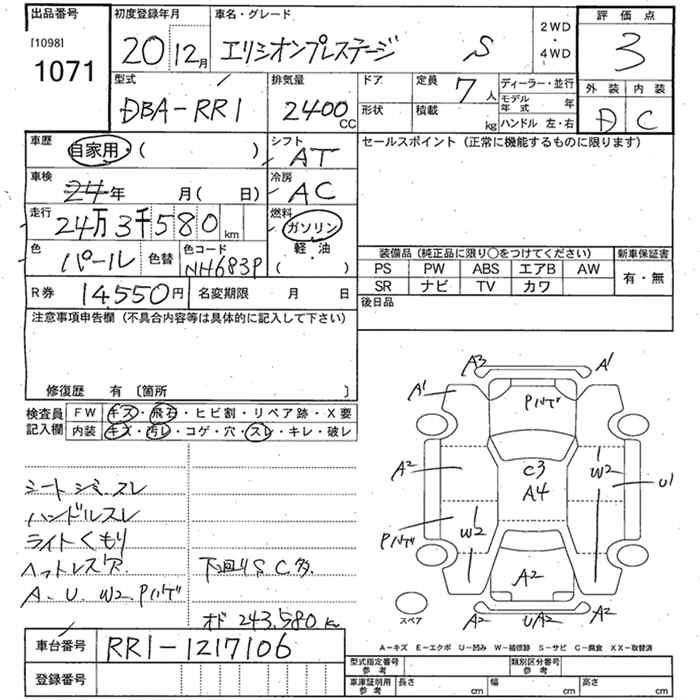 出品番号 初度登録年月 車名・グレード 2WD・4WD 評価点
[1098]
1071 20 12月 エリシオンプレステージ S 3
型式 排気量 ドア 定員 7人 ディーラー・並行 外装 内装
DBA-RR1 2400CC 形状 積載 kg モデル年式 年 D C
ハンドル 左・右
車歴 自家用・( ) シフト AT セールスポイント(正常に機能するものに限ります)
車検 24年 月( 日) 冷房 AC
走行 24万3千580km 燃料 ガソリン 軽・油 ( )
色 パール 色替 色コード NH683P
装備品(純正品に限り○をつけてください) 新車保証書
PS PW ABS エアB AW 有・無
SR ナビ TV カワ
R券 14,550円 名変期限 月 日 後日品
注意事項申告欄(不具合内容等は具体的に記入して下さい)
修復歴 有 〔箇所 〕
検査員記入欄 FW キズ・飛石・ヒビ割・リペア跡・X要
内装 キズ・汚レ・コゲ・穴・スレ・キレ・破レ
シートシミ.スレ
ハンドルスレ
ライトくもり
ヘットレス穴 下回りS C多
A.U.W2.Pハゲ
オド 243,580K
A3 A1
A1 Pハゲ
A2 C3 W2 U1
A4
Pハゲ W2
A2
スペア A2 UA2 A2
A-キズ E-エクボ U-凹み W-補修跡 S-サビ C-腐食 XX-取替済
車台番号 RR1-1217106
登録番号
型式指定番号 参考 類別区分番号 参考
車庫証明用 参考 長さ cm 幅 cm 高さ cm